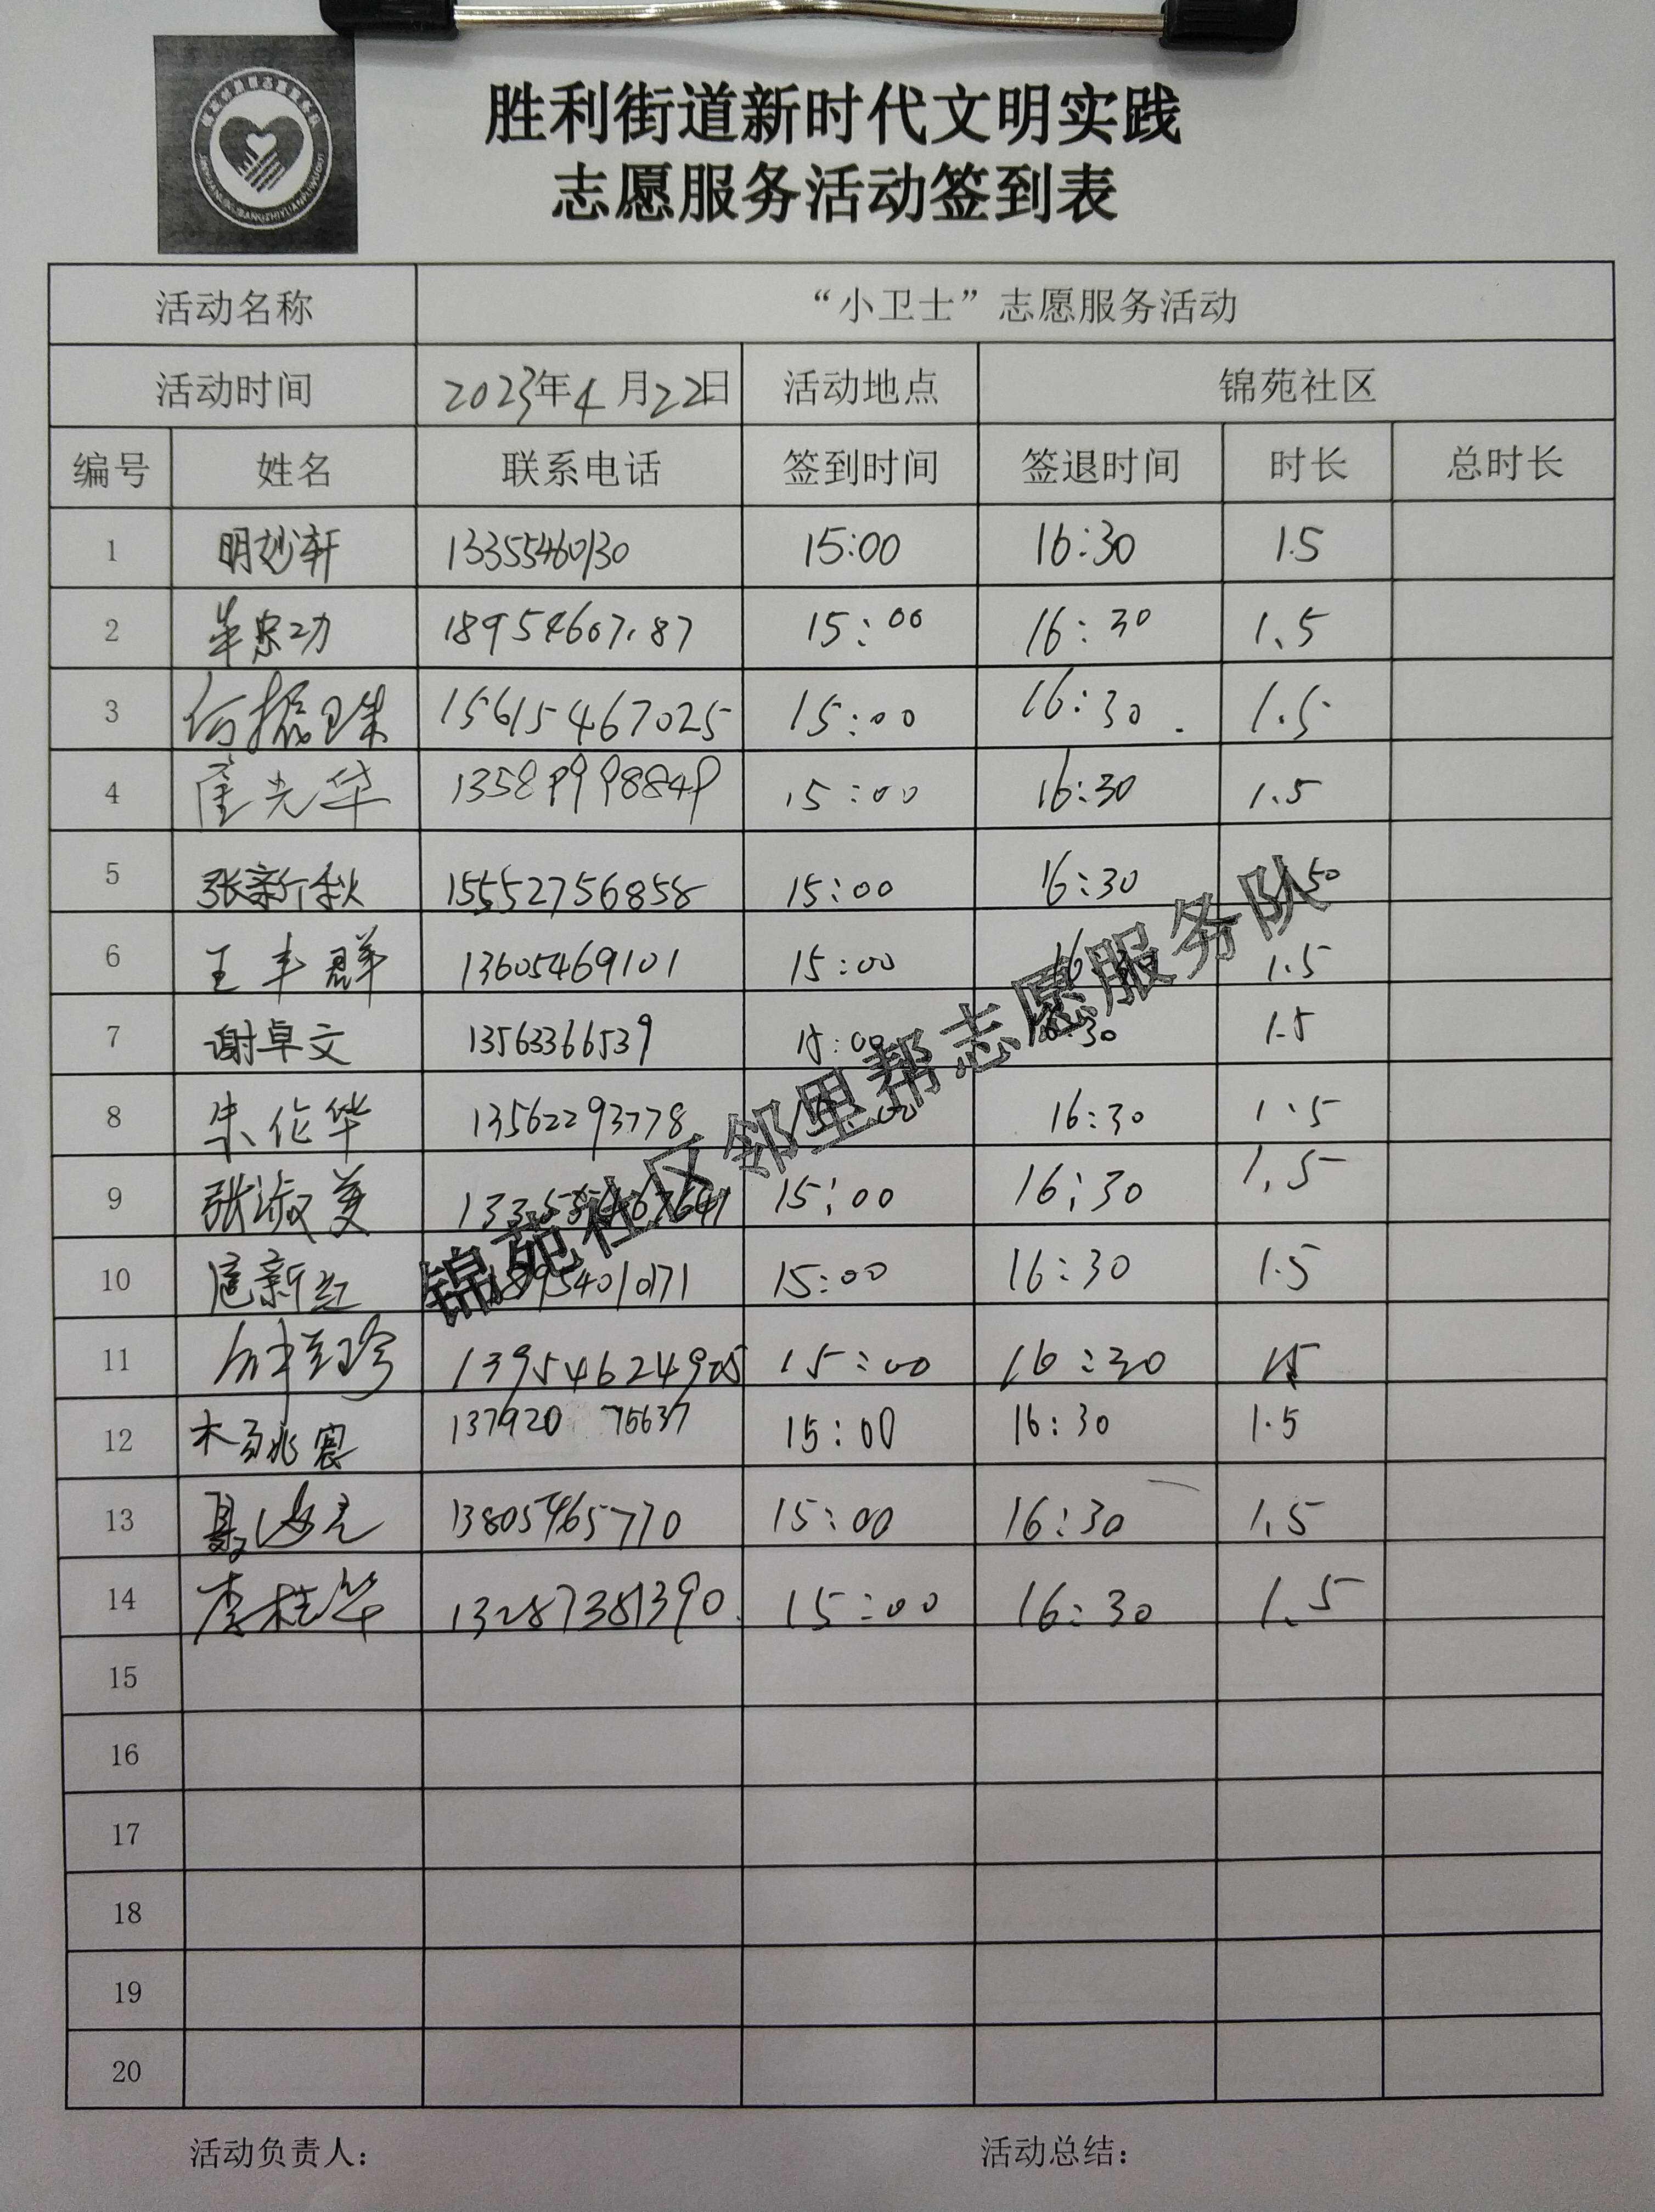 胜利街道新时代文明实践
志愿服务活动签到表
活动名称 “小卫士”志愿服务活动
活动时间 2023年4月22日 活动地点 锦苑社区
编号 姓名 联系电话 签到时间 签退时间 时长 总时长
1 明妙轩 13355460130 15:00 16:30 1.5
2 牟忠功 18954607187 15:00 16:30 1.5
3 何振珠 15615467025 15:00 16:30 1.5
4 崔光华 13589998849 15:00 16:30 1.5
5 张新秋 15552756858 15:00 16:30 1.50
6 王丰群 13605469101 15:00 16:30 1.5
7 谢卓文 13563366539 15:00 16:30 1.5
8 朱伦华 13562293778 15:00 16:30 1.5
9 张淑美 15:00 16:30 1.5
10 扈新红 18954010171 15:00 16:30 1.5
11 13954624905 15:00 16:30 1.5
12 杨兆寰 13792075637 15:00 16:30 1.5
13 聂海亮 13805465770 15:00 16:30 1.5
14 李桂华 13287381390 15:00 16:30 1.5
15
16
17
18
19
20
锦苑社区邻里帮志愿服务队
活动负责人： 活动总结：